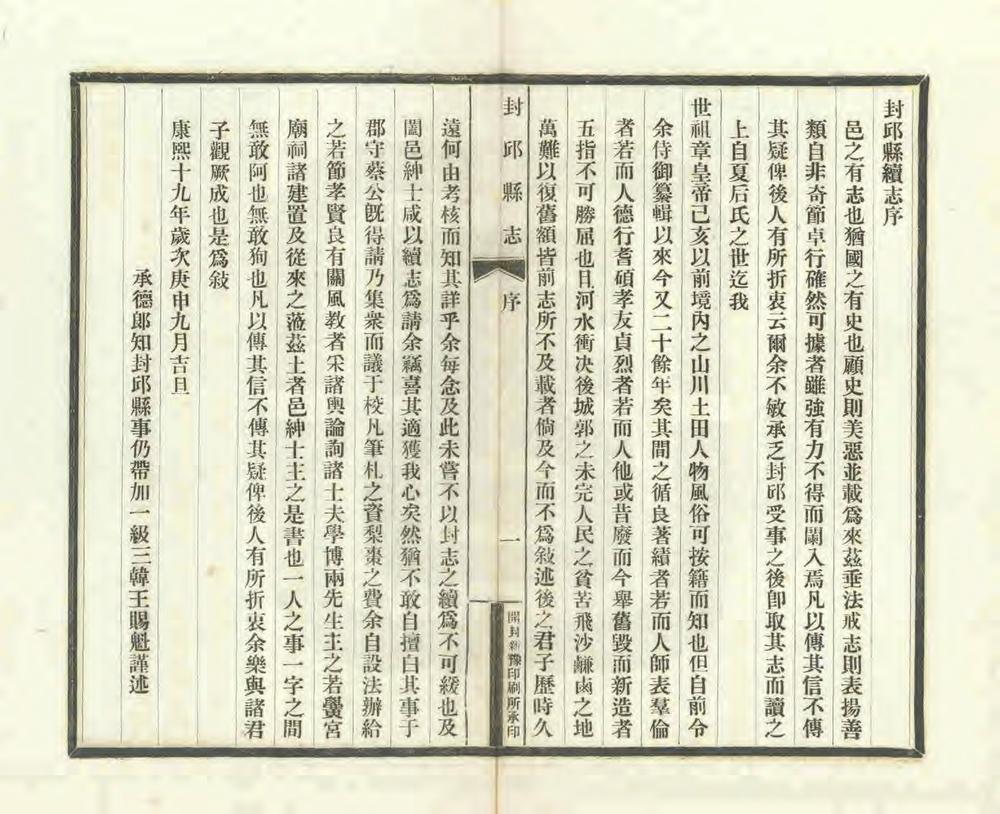 封邱縣續志序
邑之有志也猶國之有史也顧史則美惡並載爲來茲垂法戒志則表揚善
類自非奇節卓行確然可據者雖強有力不得而闌入焉凡以傳其信不傳
其疑俾後人有所折衷云爾余不敏承乏封邱受事之後卽取其志而讀之
上自夏后氏之世迄我
世祖章皇帝己亥以前境內之山川土田人物風俗可按籍而知也但自前令
余侍御纂輯以來今又二十餘年矣其間之循良著績者若而人師表羣倫
者若而人德行耆碩孝友貞烈者若而人他或昔廢而今舉舊毀而新造者
五指不可勝屈也且河水衝決後城郭之未完人民之貧苦飛沙鹻鹵之地
萬難以復舊額皆前志所不及載者倘及今而不爲敍述後之君子歷時久
封邱縣志
序
一
開封新豫印刷所承印
遠何由考核而知其詳乎余每念及此未嘗不以封志之續爲不可緩也及
闔邑紳士咸以續志爲請余竊喜其適獲我心矣然猶不敢自擅白其事于
郡守蔡公旣得請乃集衆而議于校凡筆札之資梨棗之費余自設法辦給
之若節孝賢良有關風教者采諸輿論詢諸士夫學博兩先生主之若黌宮
廟祠諸建置及從來之蒞茲土者邑紳士主之是書也一人之事一字之間
無敢阿也無敢狥也凡以傳其信不傳其疑俾後人有所折衷余樂與諸君
子觀厥成也是爲敍
康熙十九年歲次庚申九月吉旦
承德郎知封邱縣事仍帶加一級三韓王賜魁謹述